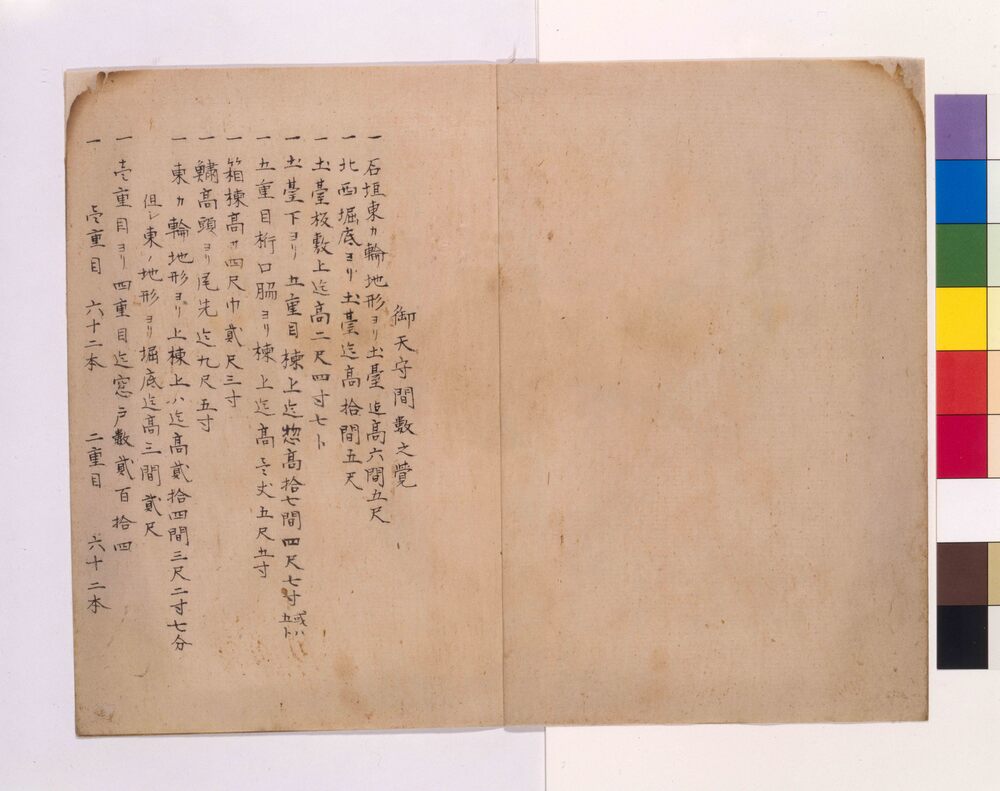 御天守間数之覺
一 石垣東カ輪地形ヨリ土臺迄高六間五尺
一 北西堀底ヨリ土臺迄高拾間五尺
一 土臺板敷上迄高二尺四寸七ト
一 土臺下ヨリ五重目棟上迄惣高拾七間四尺七寸 或ハ五ト
一 五重目桁口脇ヨリ棟上迄高壱丈五尺五寸
一 箱棟高サ四尺巾貳尺三寸
一 鱐高頭ヨリ尾先迄九尺五寸
一 東カ輪地形ヨリ上棟上ハ迄高貳拾四間三尺二寸七分
但シ東ノ地形ヨリ堀底迄高三間貳尺
一 壱重目ヨリ四重目迄窓戸数貳百拾四
一 壱重目 六十二本 二重目 六十二本